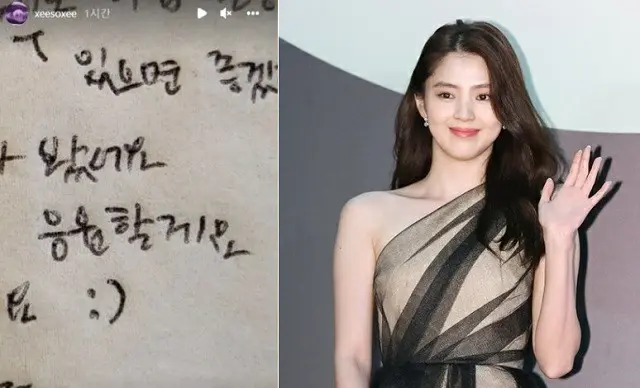 xeesoxee 1시간
있으면 좋겠
봤어요
응원할게요
요 :)